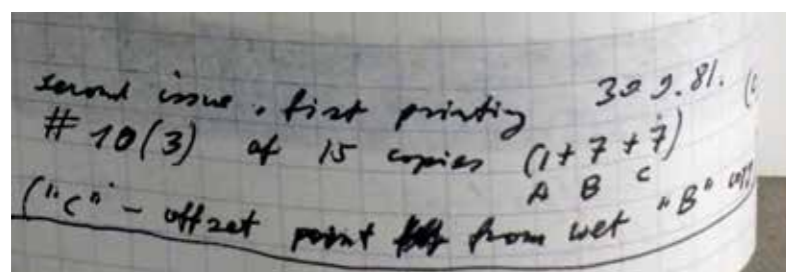 second issue, first printing 30 9.81. (
# 10(3) of 15 copies (1+7+7)
A B C
("C" - offset point from wet "B"